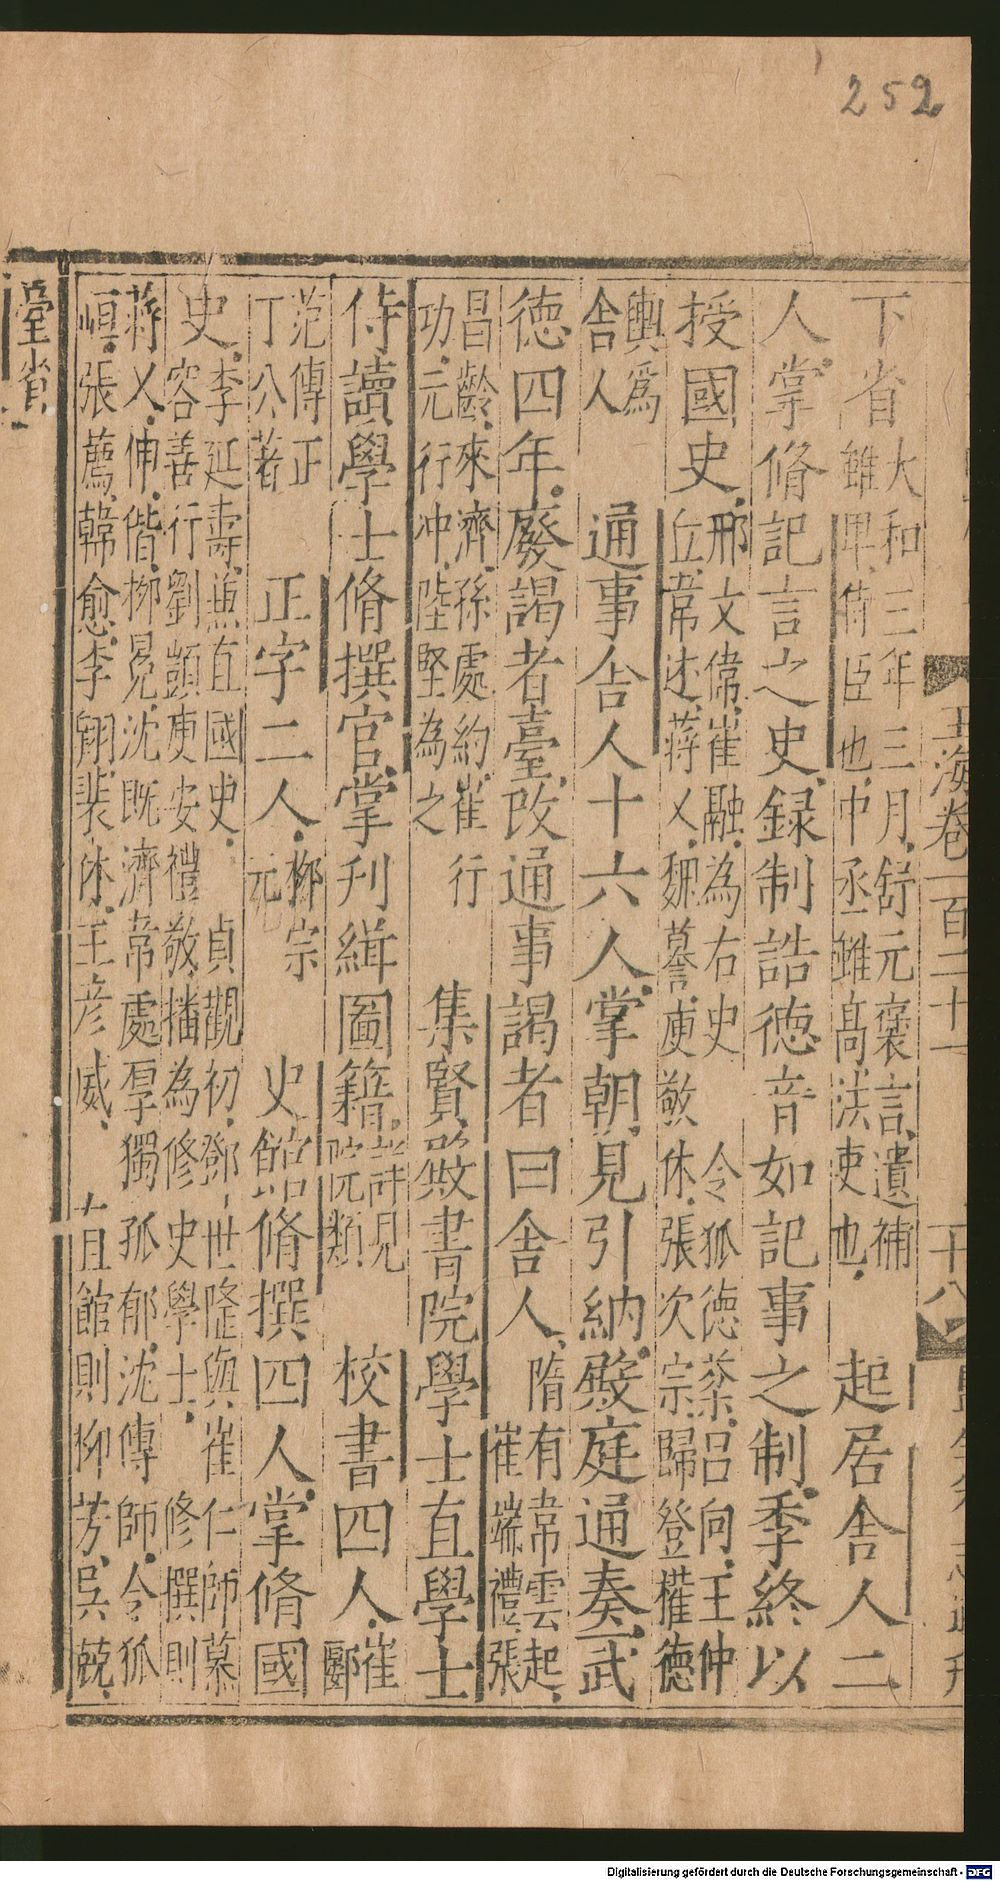 252
玉海卷一百二十一
十八
下省大和三年三月舒元褒言遺補雖卑侍臣也中丞雖髙法吏也 起居舍人二
人掌脩記言之史録制誥徳音如記事之制季終以
授國史邢文偉崔融為右史 令狐徳棻吕向王仲丘韋述蒋乂魏謩庾敬休張次宗歸登權德
輿爲舍人 通事舍人十六人掌朝見引納殿庭通奏武
徳四年廢謁者臺改通事謁者曰舍人隋有韋雲起崔端禮張
昌齡來濟孫處約崔行功元行冲陸堅為之 集賢殿書院學士直學士
侍讀學士脩撰官掌刋緝圖籍詳見院類 校書四人崔郾
范傳正丁公著 正字二人栁宗元 史館脩撰四人掌脩國
史李延壽兼直國史 貞觀初鄧世隆與崔仁師慕容善行劉顗庾安禮敬播為修史學士 修撰則
蒋乂伸偕栁冕沈既濟韋處厚獨孤郁沈傳師令狐峘張薦韓愈李翺裴休王彦威 直館則栁芳吳兢
臺省
Digitalisierung gefördert durch die Deutsche Forschungsgemeinschaft - DFG